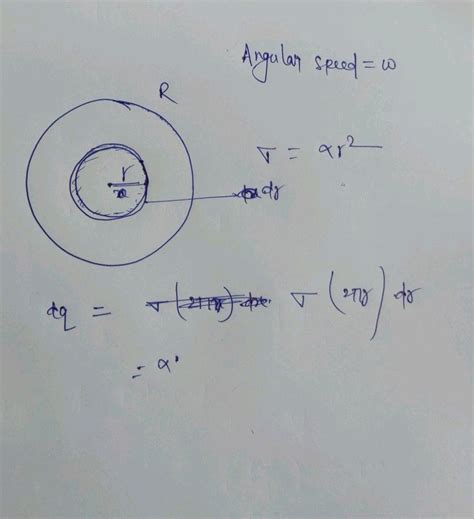 Angular speed = ω
R
σ = αr²
r
dr
dq = σ (2πr) dr
= α